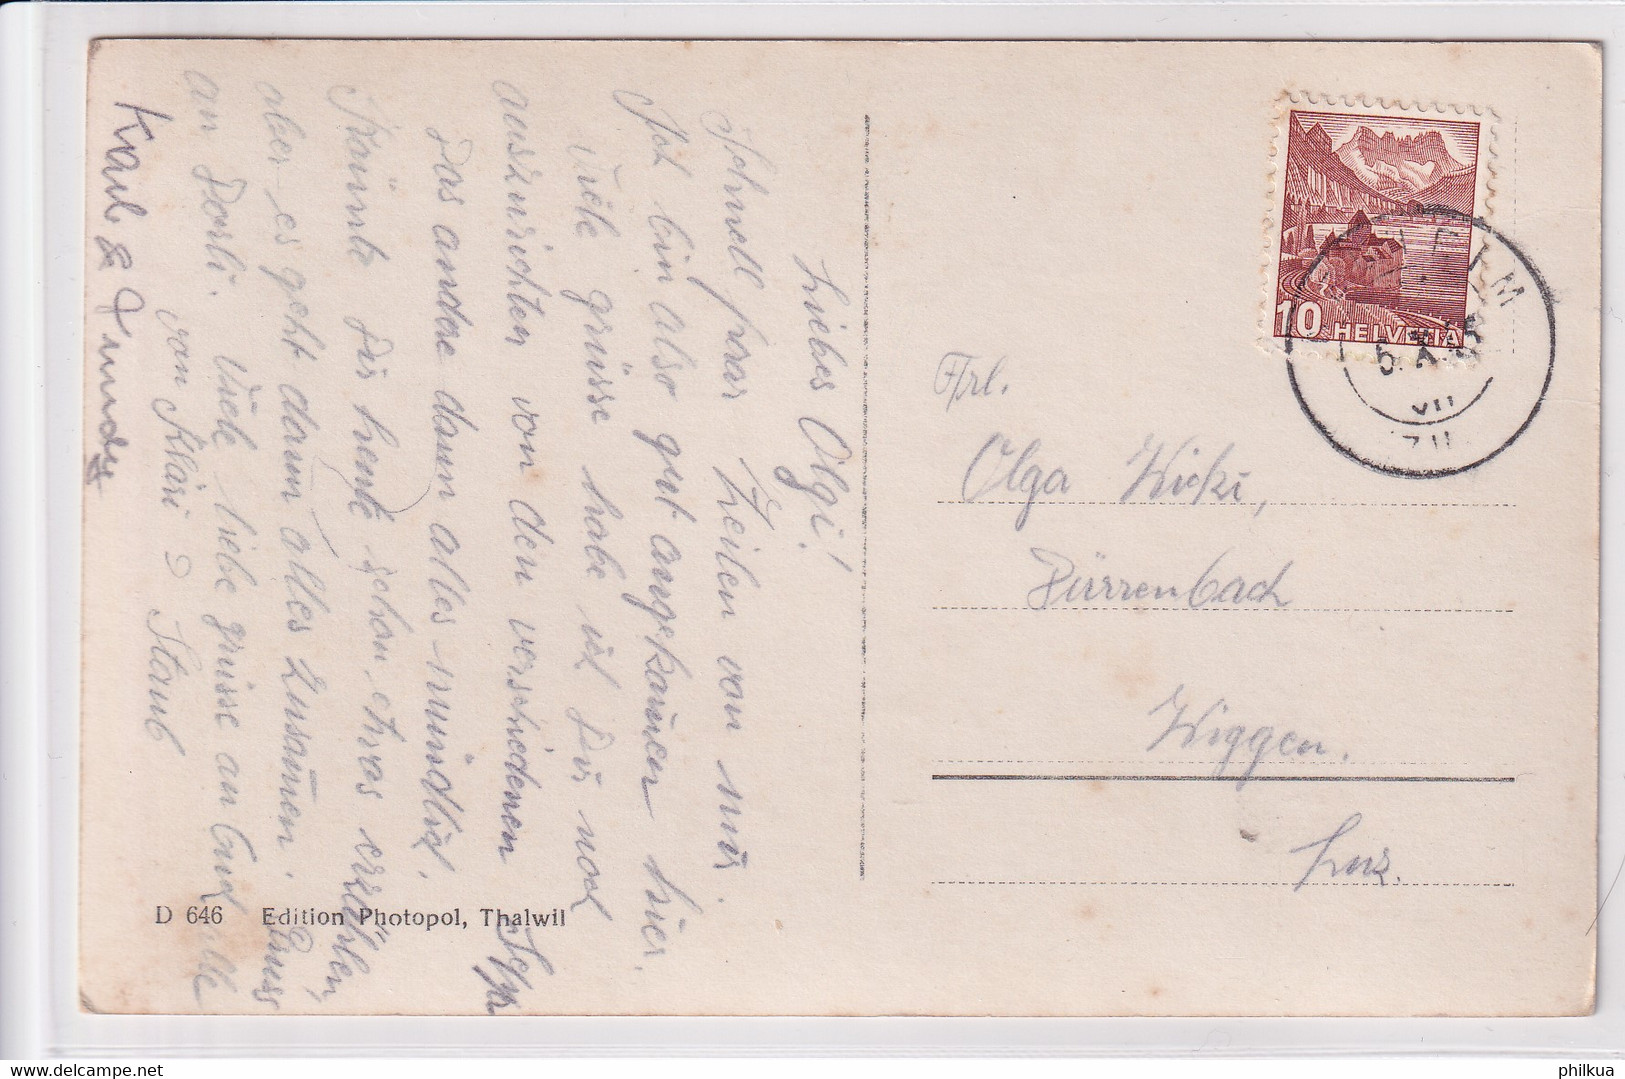 Liebes Olgi!
Schnell paar Zeilen von mir.
Ich bin also gut angekom̄en hier.
Viele grüsse habe ich Dir noch
auszurichten von den verschiedenen
Das andere dann alles mündlich.
Könnte Dir heute schon etwas erzählen,
aber es geht dann alles zusam̄en. Gruss
an Dorli. Viele liebe grüsse an Euch alle
von Kläri Staub
Karl &
D 646 Edition Photopol, Thalwil
10 HELVETIA
VII
Frl.
Olga Wicki,
Dürrenbach
Wiggen.
Luz.
delcampe.net
philkua